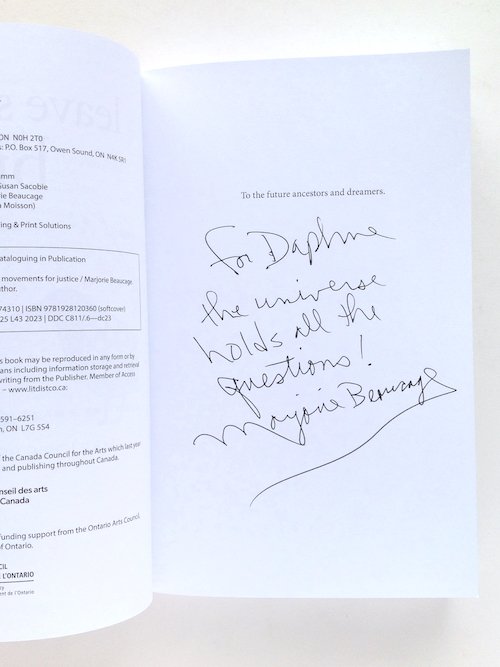 ON N0H 2T0
: P.O. Box 517, Owen Sound, ON N4K 5R1
mm
Susan Sacobie
rie Beaucage
Moisson)
ing & Print Solutions
ataloguing in Publication
movements for justice / Marjorie Beaucage
uthor.
74310 | ISBN 9781928120360 (softcover)
25 L43 2023 | DDC C811/.6—dc23
s book may be reproduced in any form or by
ans including information storage and retrieval
writing from the Publisher. Member of Access
– www.litdistco.ca;
591–6251
n, ON L7G 5S4
the Canada Council for the Arts which last year
and publishing throughout Canada.
nseil des arts
Canada
unding support from the Ontario Arts Council,
of Ontario.
CIL
L'ONTARIO
ry
ent de l'Ontario
To the future ancestors and dreamers.
for Daphne
the universe
holds all the
questions!
Marjorie Beaucage